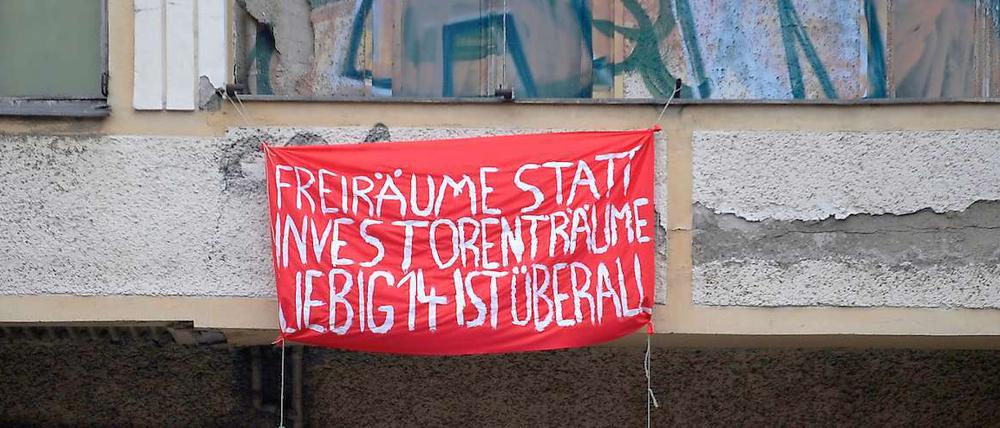 FREIRÄUME STATT
INVESTORENTRÄUME
LIEBIG 14 IST ÜBERALL